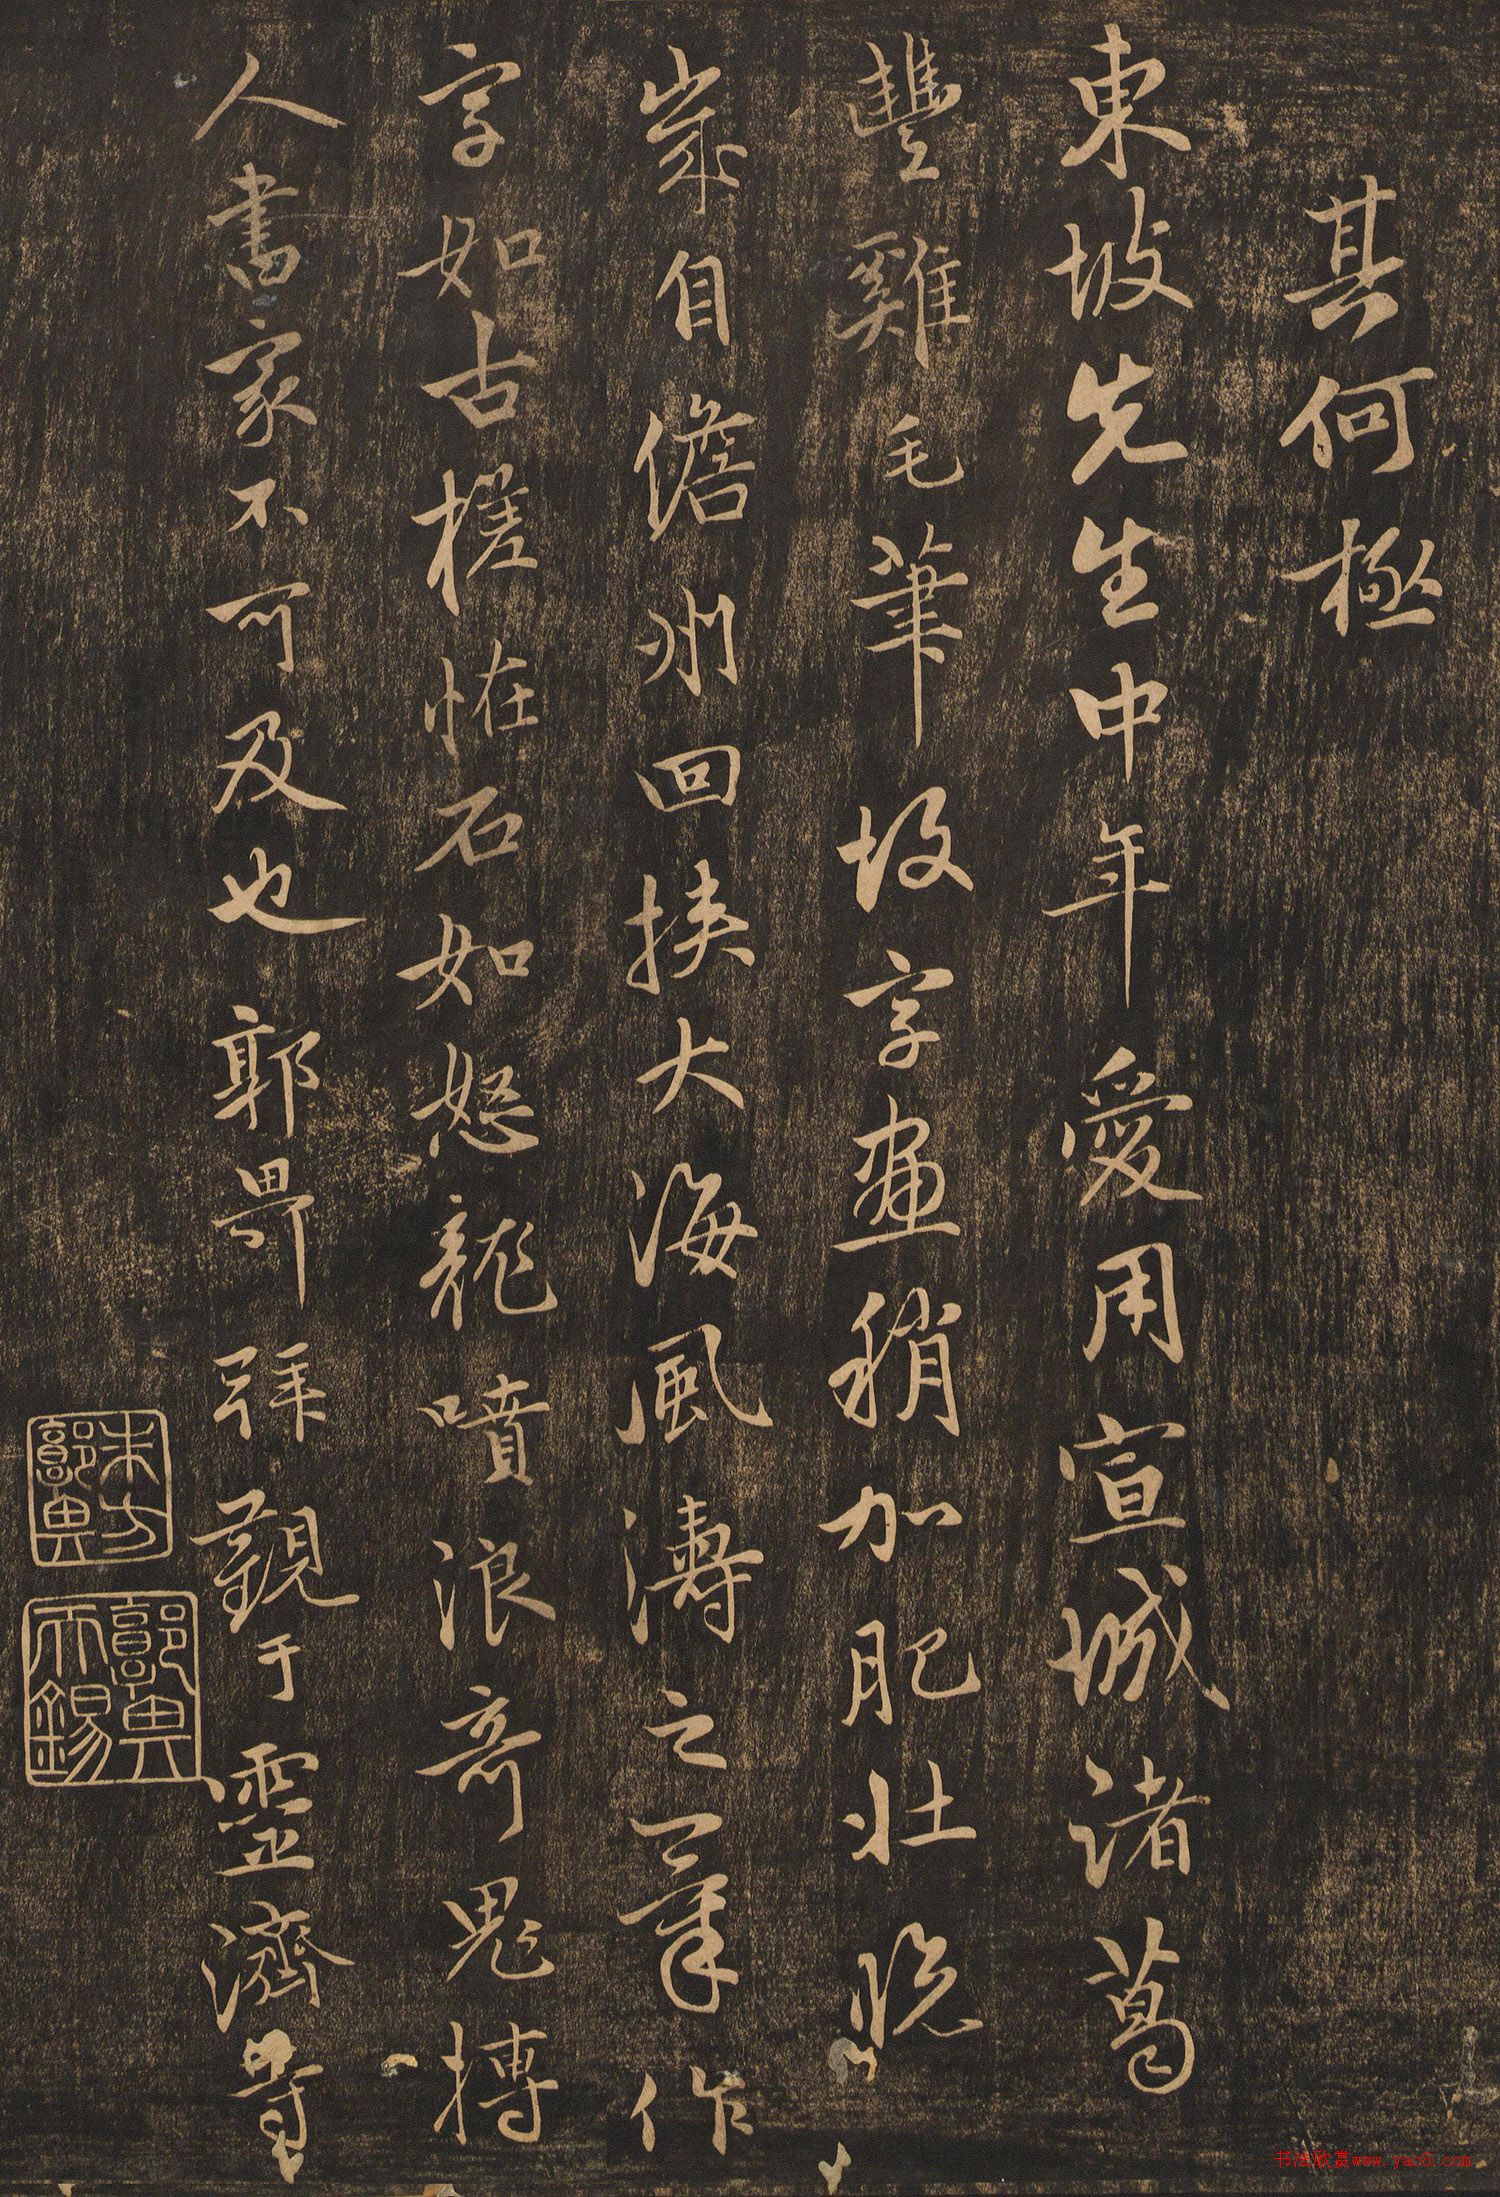 其何極
東坡先生中年愛用宣城諸葛
豐雞毛筆故字畫稍加肥壯晚
歲自儋州回挾大海風濤之氣作
字如古槎怪石如怒龍噴浪奇鬼搏
人書家不可及也郭畀拜觀于靈濟寺
郭畀
郭畀天錫
书法欣赏www.yac8.com